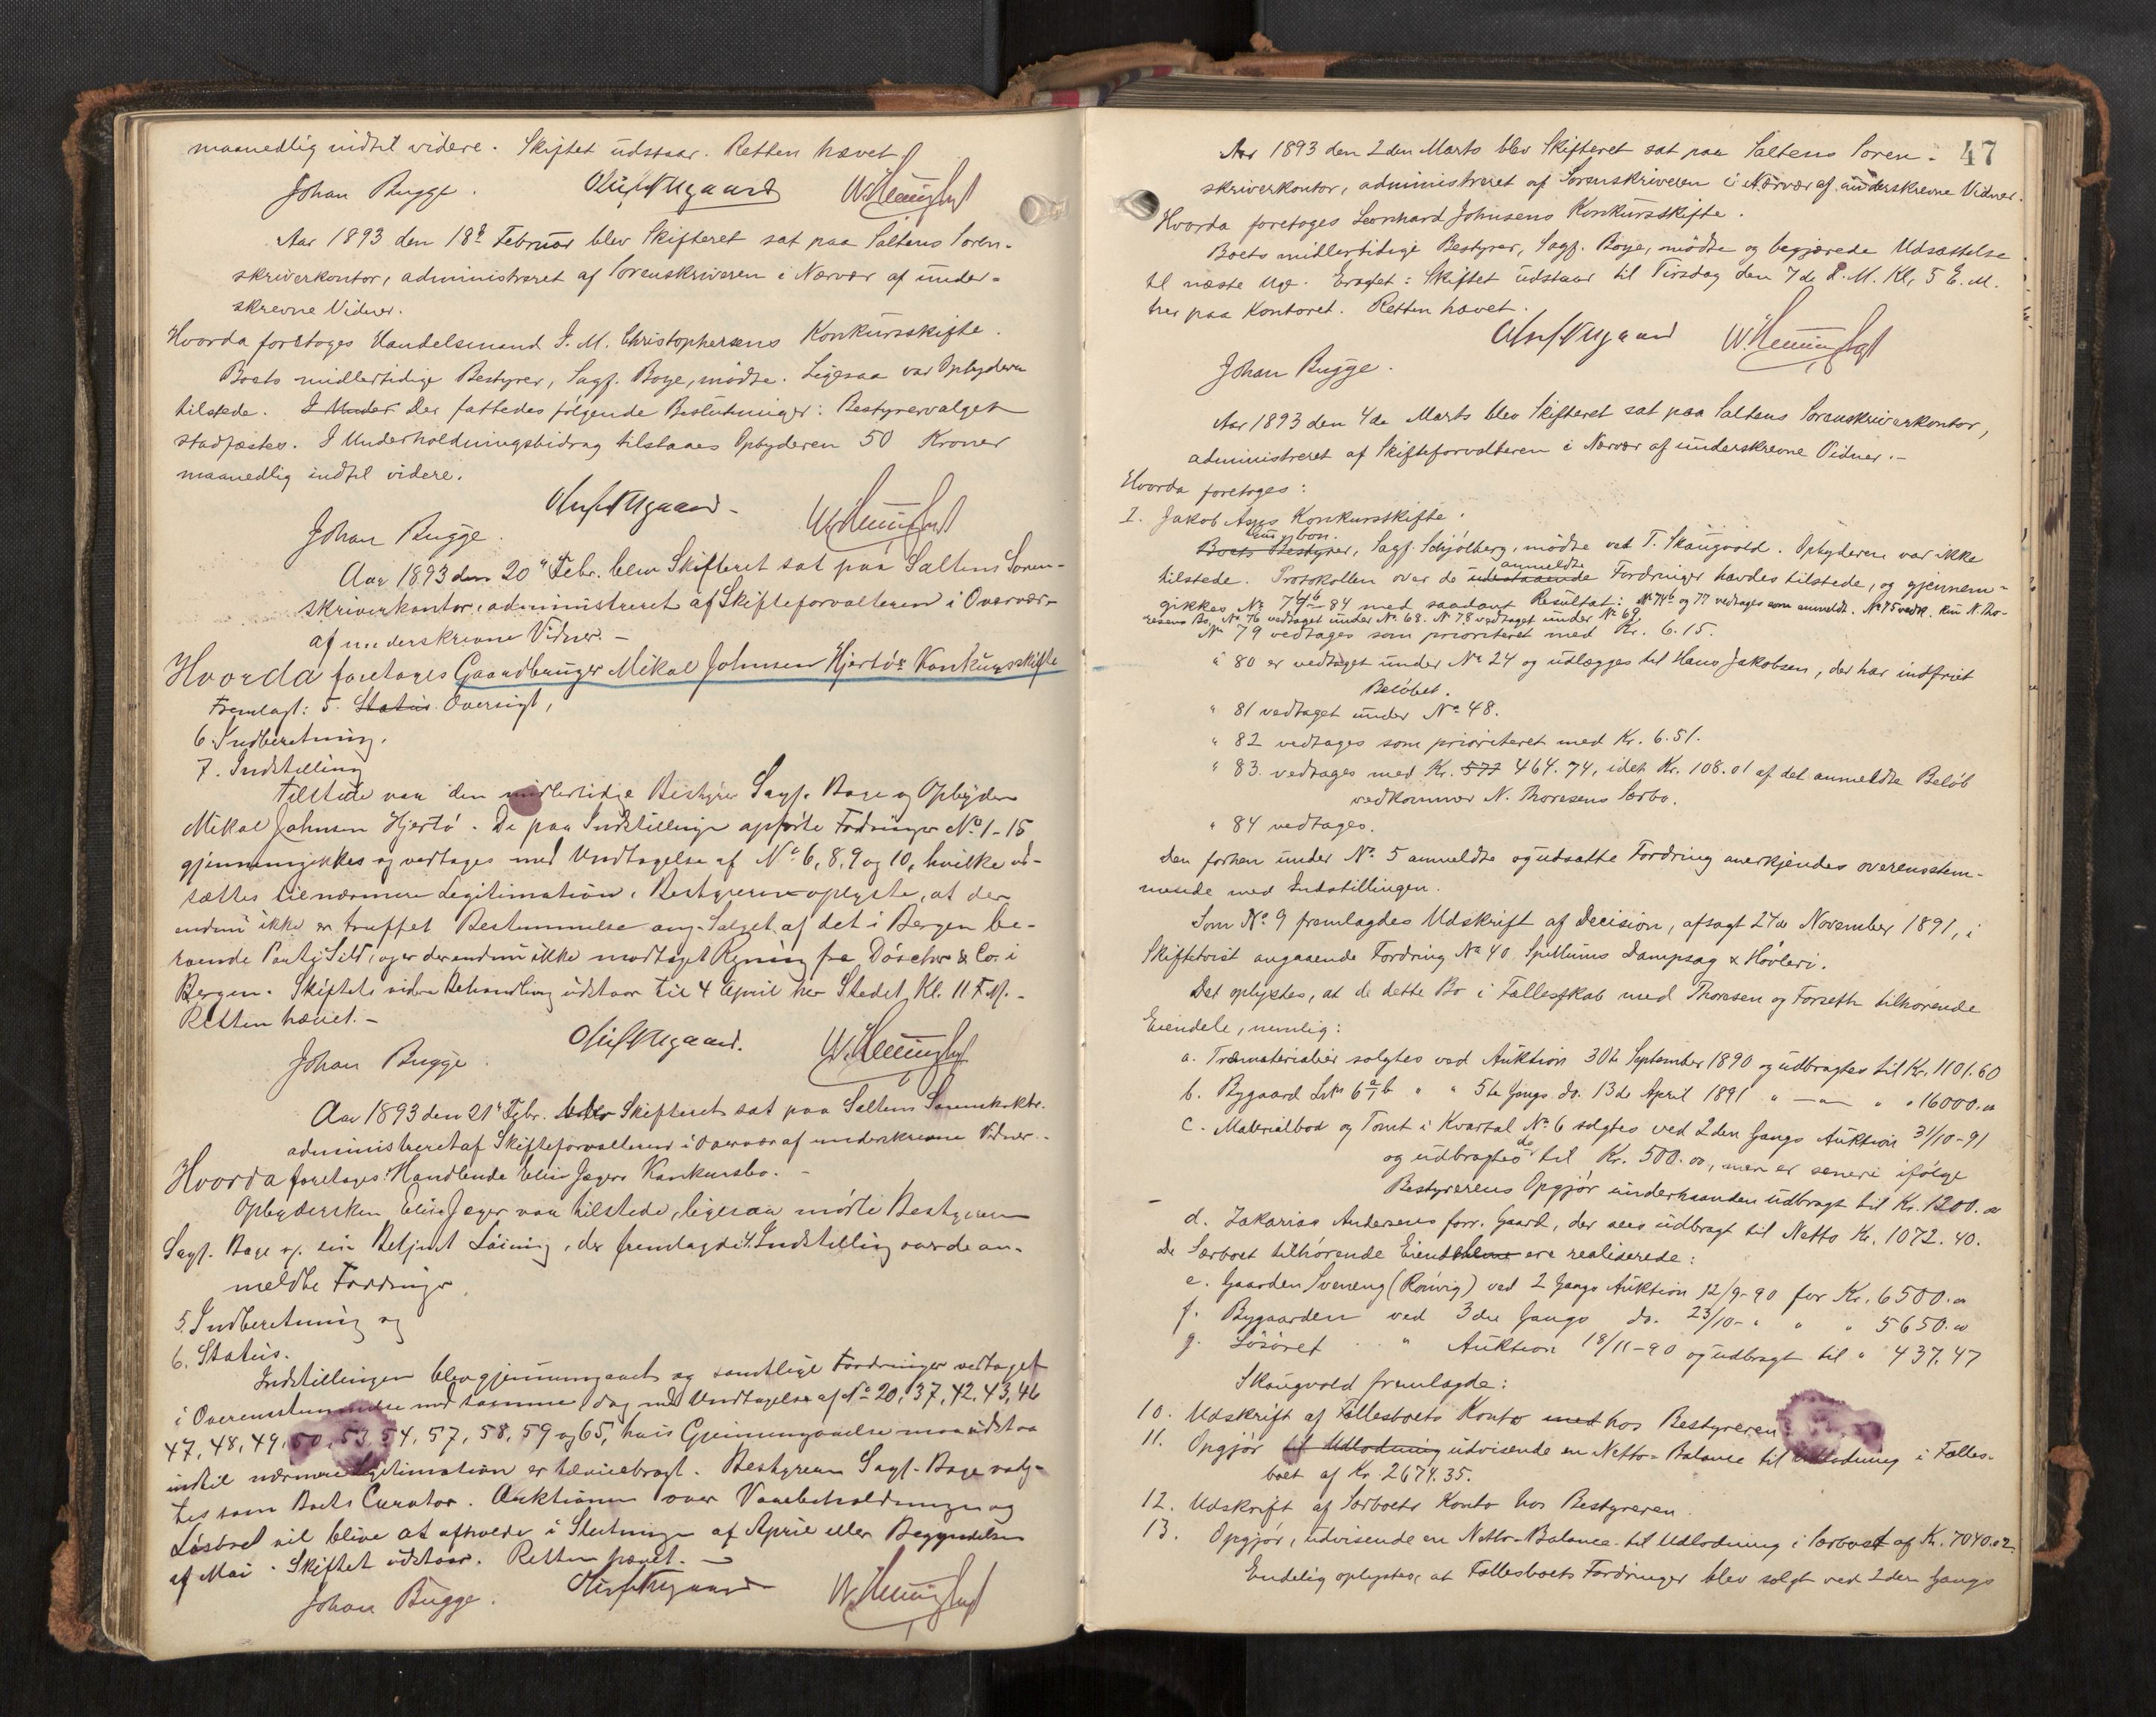 maanedlig indtil videre. Skiftet udstaar. Retten hævet
Johan Bugge.
Aar 1893 den 18de Februar blev Skifteret sat paa Saltens Soren-
skriverkontor, administreret af Sorenskriveren i Nærvær af under-
skrevne Vidner.
Hvorda foretoges Handelsmand J. M. Christophersens Konkursskifte.
Boets midlertidige Bestyrer, Sagf. Boye, mødte. Ligesaa var Opbyderen
tilstede. I Under Der fattedes følgende Beslutninger: Bestyrervalget
stadfæstes. I Underholdningsbidrag tilstaaes Opbyderen 50 Kroner
maanedlig indtil videre.
Johan Bugge.
Aar 1893 den 20de Febr. blev Skifteret sat paa Saltens Soren-
skriverkontor, administreret af Skifteforvalteren i Overvær
af underskrevne Vidner. -
Hvorda foretoges Gaardbruger Mikal Johnsen Hjertøs Konkursskifte
Fremlagt: 5. Status Oversigt,
6. Indberetning.
7. Indstilling
Tilstede var den midlertidige Bestyrer Sagf. Boye og Opbyderen
Mikal Johnsen Hjertø. De paa Indstillingen opførte Fordringer No 1-15
gjennemgikkes og vedtoges med Undtagelse af No 6, 8, 9 og 10, hvilke ud-
sættes til nærmere Legitimation. Bestyreren oplyste, at der
endnu ikke er truffet Bestemmelse ang. Salget af det i Bergen be-
roende Parti Sild, og er der endnu ikke modtaget Regning fra Döscher & Co. i
Bergen. Skiftets videre Behandling udstaar til 4 April her Stedet Kl. 11 F.M. -
Retten hævet. -
Johan Bugge
Aar 1893 den 21de Febr. blev Skifteret sat paa Saltens Sorenskrktr.
administreret af Skifteforvalteren i Overvær af underskrevne Vidner. -
Hvorda foretoges: Handlende Elise Jægers Konkursbo. -
Opbydersken Elise Jæger var tilstede, ligesaa mødte Bestyreren
Sagf. Boye v. sin Betjent Löining, der fremlagde 4. Indstilling over de an-
meldte Fordringer,
5. Indberetning og
6. Status.
Indstillingen blev gjennemgaaet og samtlige Fordringer vedtaget
i Overensstemmelse med samme i dag med Undtagelse af No 20, 37, 42, 43, 46
47, 48, 49, 50, 53, 54, 57, 58, 59 og 65, hvis Gjennemgaaelse maa udstaa
indtil nærmere Legitimation er tilveiebragt. Bestyreren Sagf. Boye valg-
tes som Boets Curator. Auktionen over Varebeholdningen og
Løsøret vil blive at afholde i Slutningen af April eller Begyndelsen
af Mai. Skiftet udstaar. Retten hævet. -
Johan Bugge.
47
Aar 1893 den 2den Marts blev Skifteret sat paa Saltens Soren-
skriverkontor, administreret af Sorenskriveren i Nærvær af underskrevne Vidner.
Hvorda foretoges Leonhard Johnsens Konkursskifte.
Boets midlertidige Bestyrer, Sagf. Boye, mødte og begjærede Udsættelse
til næste Uge. Eragtet: Skiftet udstaar til Tirsdag den 7de d.M. Kl. 5 E.M.
her paa Kontoret. Retten hævet.
Johan Bugge.
Aar 1893 den 4de Marts blev Skifteret sat paa Saltens Sorenskriverkontor,
administreret af Skifteforvalteren i Nærvær af underskrevne Vidner. -
Hvorda foretoges:
1. Jakob Konkursskifte.
Boets Bestyrer, Sagf. Schjølberg, mødte ved T. Skaugvold. Opbyderen var ikke
anmeldte
tilstede. Protokollen over de udestaaende Fordringer havdes tilstede, og gjennem-
gikkes No 74b-84 med saadant Resultat: No 74b og 77 vedtages som anmeldt. No 75 vedk. kun N. Tho-
resens Bo. No 76 vedtaget under No 68. No 78 vedtaget under No 69
No 79 vedtages som prioriteret med Kr. 6.15.
" 80 er vedtaget under No 24 og udlægges til Hans Jakobsen, der har indfriet
Beløbet.
" 81 vedtaget under No 48.
" 82 vedtages som prioriteret med Kr. 6.51.
" 83 vedtages med Kr. 577 464.74, idet Kr. 108.01 af det anmeldte Beløb
vedkommer N. Thoresens Særbo.
" 84 vedtages.
Den forhen under No 5 anmeldte og udsatte Fordring anerkjendes overensstem-
mende med Indstillingen.
Som No 9 fremlagdes Udskrift af Decision, afsagt 27de November 1891, i
Skiftetvist angaaende Fordring No 40. Spillums Dampsag & Høvleri.
Det oplystes, at de dette Bo i Fællesskab med Thoresen og Forseth tilhørende
Eiendele, nemlig:
a. Træmaterialier solgtes ved Auktion 30te September 1890 og udbragtes til Kr. 1101.60
b. Bygaard Lno 6 a/1 b " " 5te Gangs do. 13de April 1891 " — " — " " 16000.00
c. Materialbod og Tomt i Kvartal No 6 solgtes ved 2den Gangs Auktion 31/10-91
og udbragtes da til Kr. 500.00, men er senere ifølge
Bestyrerens Opgjør underhaanden udbragt til Kr. 1200.00
d. Zakarias Andersens forr. Gaard, der sees udbragt til Netto Kr. 1072.40.
De Særboet tilhørende Eiendele ere realiserede:
e. Gaarden Sveneng (Rønvig) ved 2 Gangs Auktion 12/9-90 for Kr. 6500.00
f. Bygaarden ved 3die Gangs do. 23/10-" " " 5650.00
g. Løsøret " Auktion 18/11-90 og udbragt til " 437.47
Skaugvold fremlagde:
10. Udskrift af Fællesboets Konto med hos Bestyreren
11. Opgjør til Udlodning udvisende en Netto-Balance til Udlodning i Fælles-
boet af Kr. 2674.35.
12. Udskrift af Særboets Konto hos Bestyreren.
13. Opgjør, udvisende en Netto-Balance til Udlodning i Særboet af Kr. 7040.02.
Endelig oplystes, at Fællesboets Fordringer blev solgt ved 2den Gangs